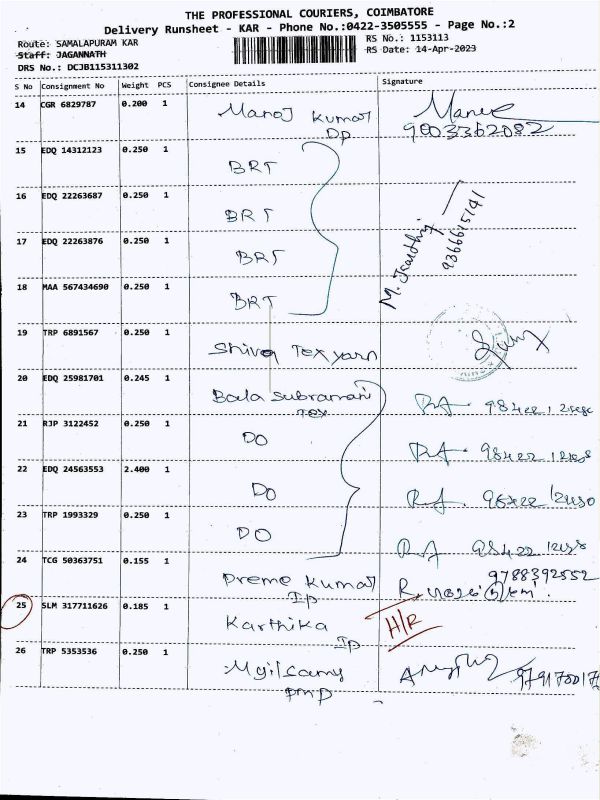 THE PROFESSIONAL COURIERS, COIMBATORE
Delivery Runsheet - KAR - Phone No.:0422-3505555 - Page No.:2
Route: SAMALAPURAM KAR
RS No.: 1153113
Staff: JAGANNATH
RS Date: 14-Apr-2023
DRS No.: DCJB115311302
S No Consignment No Weight PCS Consignee Details Signature
14 CGR 6829787 0.200 1 Manoj Kumar
DP 9003362082
15 EDQ 14312123 0.250 1 BRT
16 EDQ 22263687 0.250 1 BRT
17 EDQ 22263876 0.250 1 BRT
9366615141
18 MAA 567434690 0.250 1 BRT
19 TRP 6891567 0.250 1 Shiva Tex yarn
20 EDQ 25981701 0.245 1 Bala Subramani
Tex RA
21 RJP 3122452 0.250 1 DO RA
22 EDQ 24563553 2.400 1 DO RA
23 TRP 1993329 0.250 1 DO RA
24 TCG 50363751 0.155 1 Preme Kumar 9788392552
IP
25 SLM 317711626 0.185 1 Karthika H/R
IP
26 TRP 5353536 0.250 1 Mylsamy
PMP